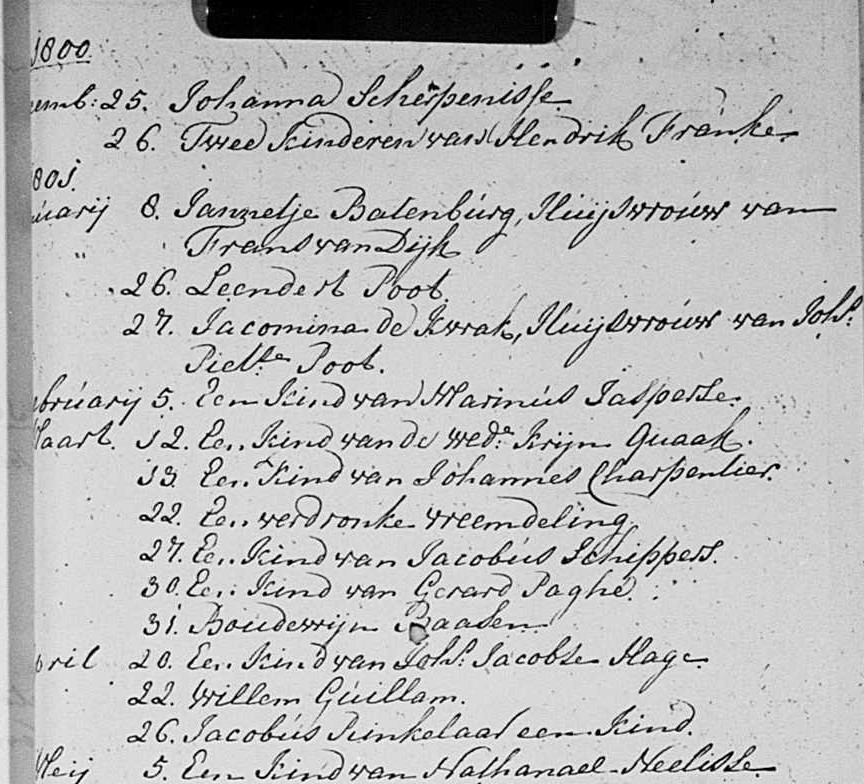 1800
emb: 25. Johanna Scherpenisse
26. Twee Kinderen van Hendrik Franke
801.
uarij 8. Jannetje Batenburg, Huijsvrouw van
" Frans van Dijk
26. Leendert Poot.
27. Jacomina de Kwak, Huijsvrouw van Johs.
Pietse Poot.
bruarij 5. Een Kind van Marinus Jasperse
Maart. 12. Een Kind van de wede. Krijn Quaak.
13. Een Kind van Johannes Charpentier.
22. Een verdronke vreemdeling
27. Een Kind van Jacobus Schippers.
30. Een Kind van Gerard Paghe.
31. Boudewijn Baasen
pril 20. Een Kind van Johs. Jacobse Hage
22. Willem Guillam.
26. Jacobus Runkelaar een Kind.
Meij 5. Een Kind van Nathanael Neelisse